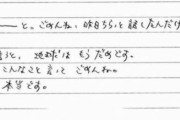 ――と。ごめんね、昨日ちらっと話したんだけ
言うと、地球はもうだめです。
こんなこと言ってごめんね。
本当です。